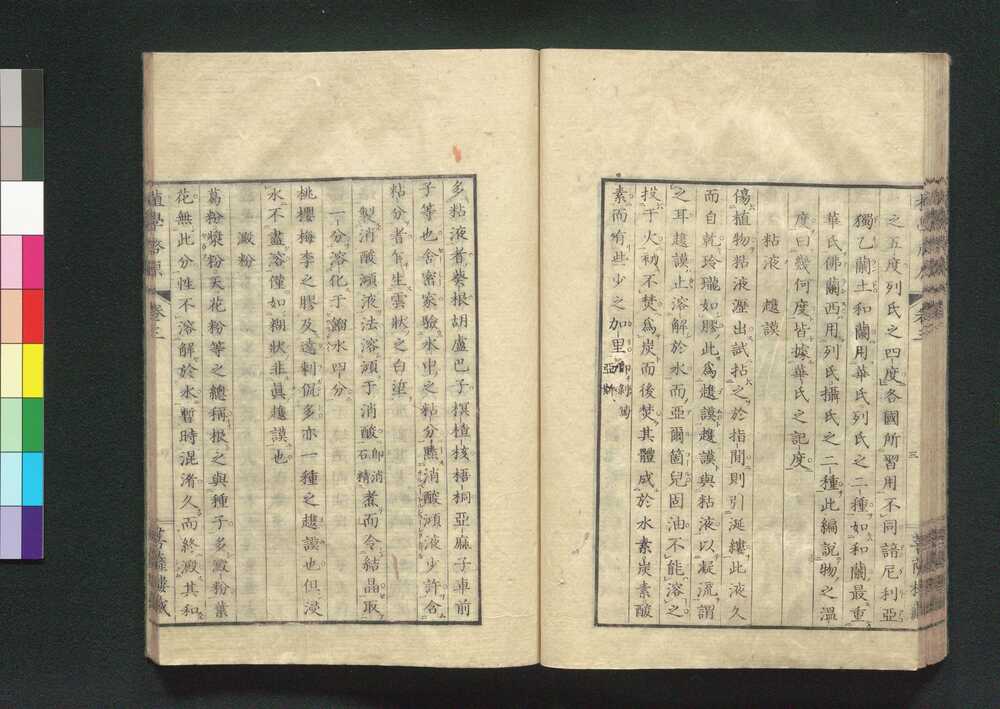 之五度列氏之四度各國所習用不同諳尼利亞
獨乙蘭土和蘭用華氏列氏之二種如和蘭最重
華氏佛蘭西用列氏攝氏之二種此編說物之溫
度曰幾何度皆據華氏之記度
粘液 越謨
傷植物粘液瀝出試拈之於指間則引涎縷此液久
而白乾玲瓏如膠此爲越謨越謨與粘液以凝流謂
之耳越謨止溶解於水而亞爾箇兒固油不能溶之
投于火初不焚爲炭而後焚其體成於水素炭素酸
素而有些少之加里
多粘液者葵根胡盧巴子榠樝核梧桐亞麻子車前
子等也舍密家驗水中之粘分點消酸澒液少許含
粘分者乍生雲狀之白滓
製消酸澒液法溶澒于消酸即消石精煮而令結晶取
一分溶化于餾水四分
桃櫻梅李之膠及達剌侃多亦一種之越謨也但浸
水不盡溶僅如糊狀非眞越謨也
澱粉
葛粉漿粉天花粉等之總稱根之與種子多澱粉葉
花無此分性不溶解於水暫時混淆久而終澱其和
三
植學啓原
卷之三